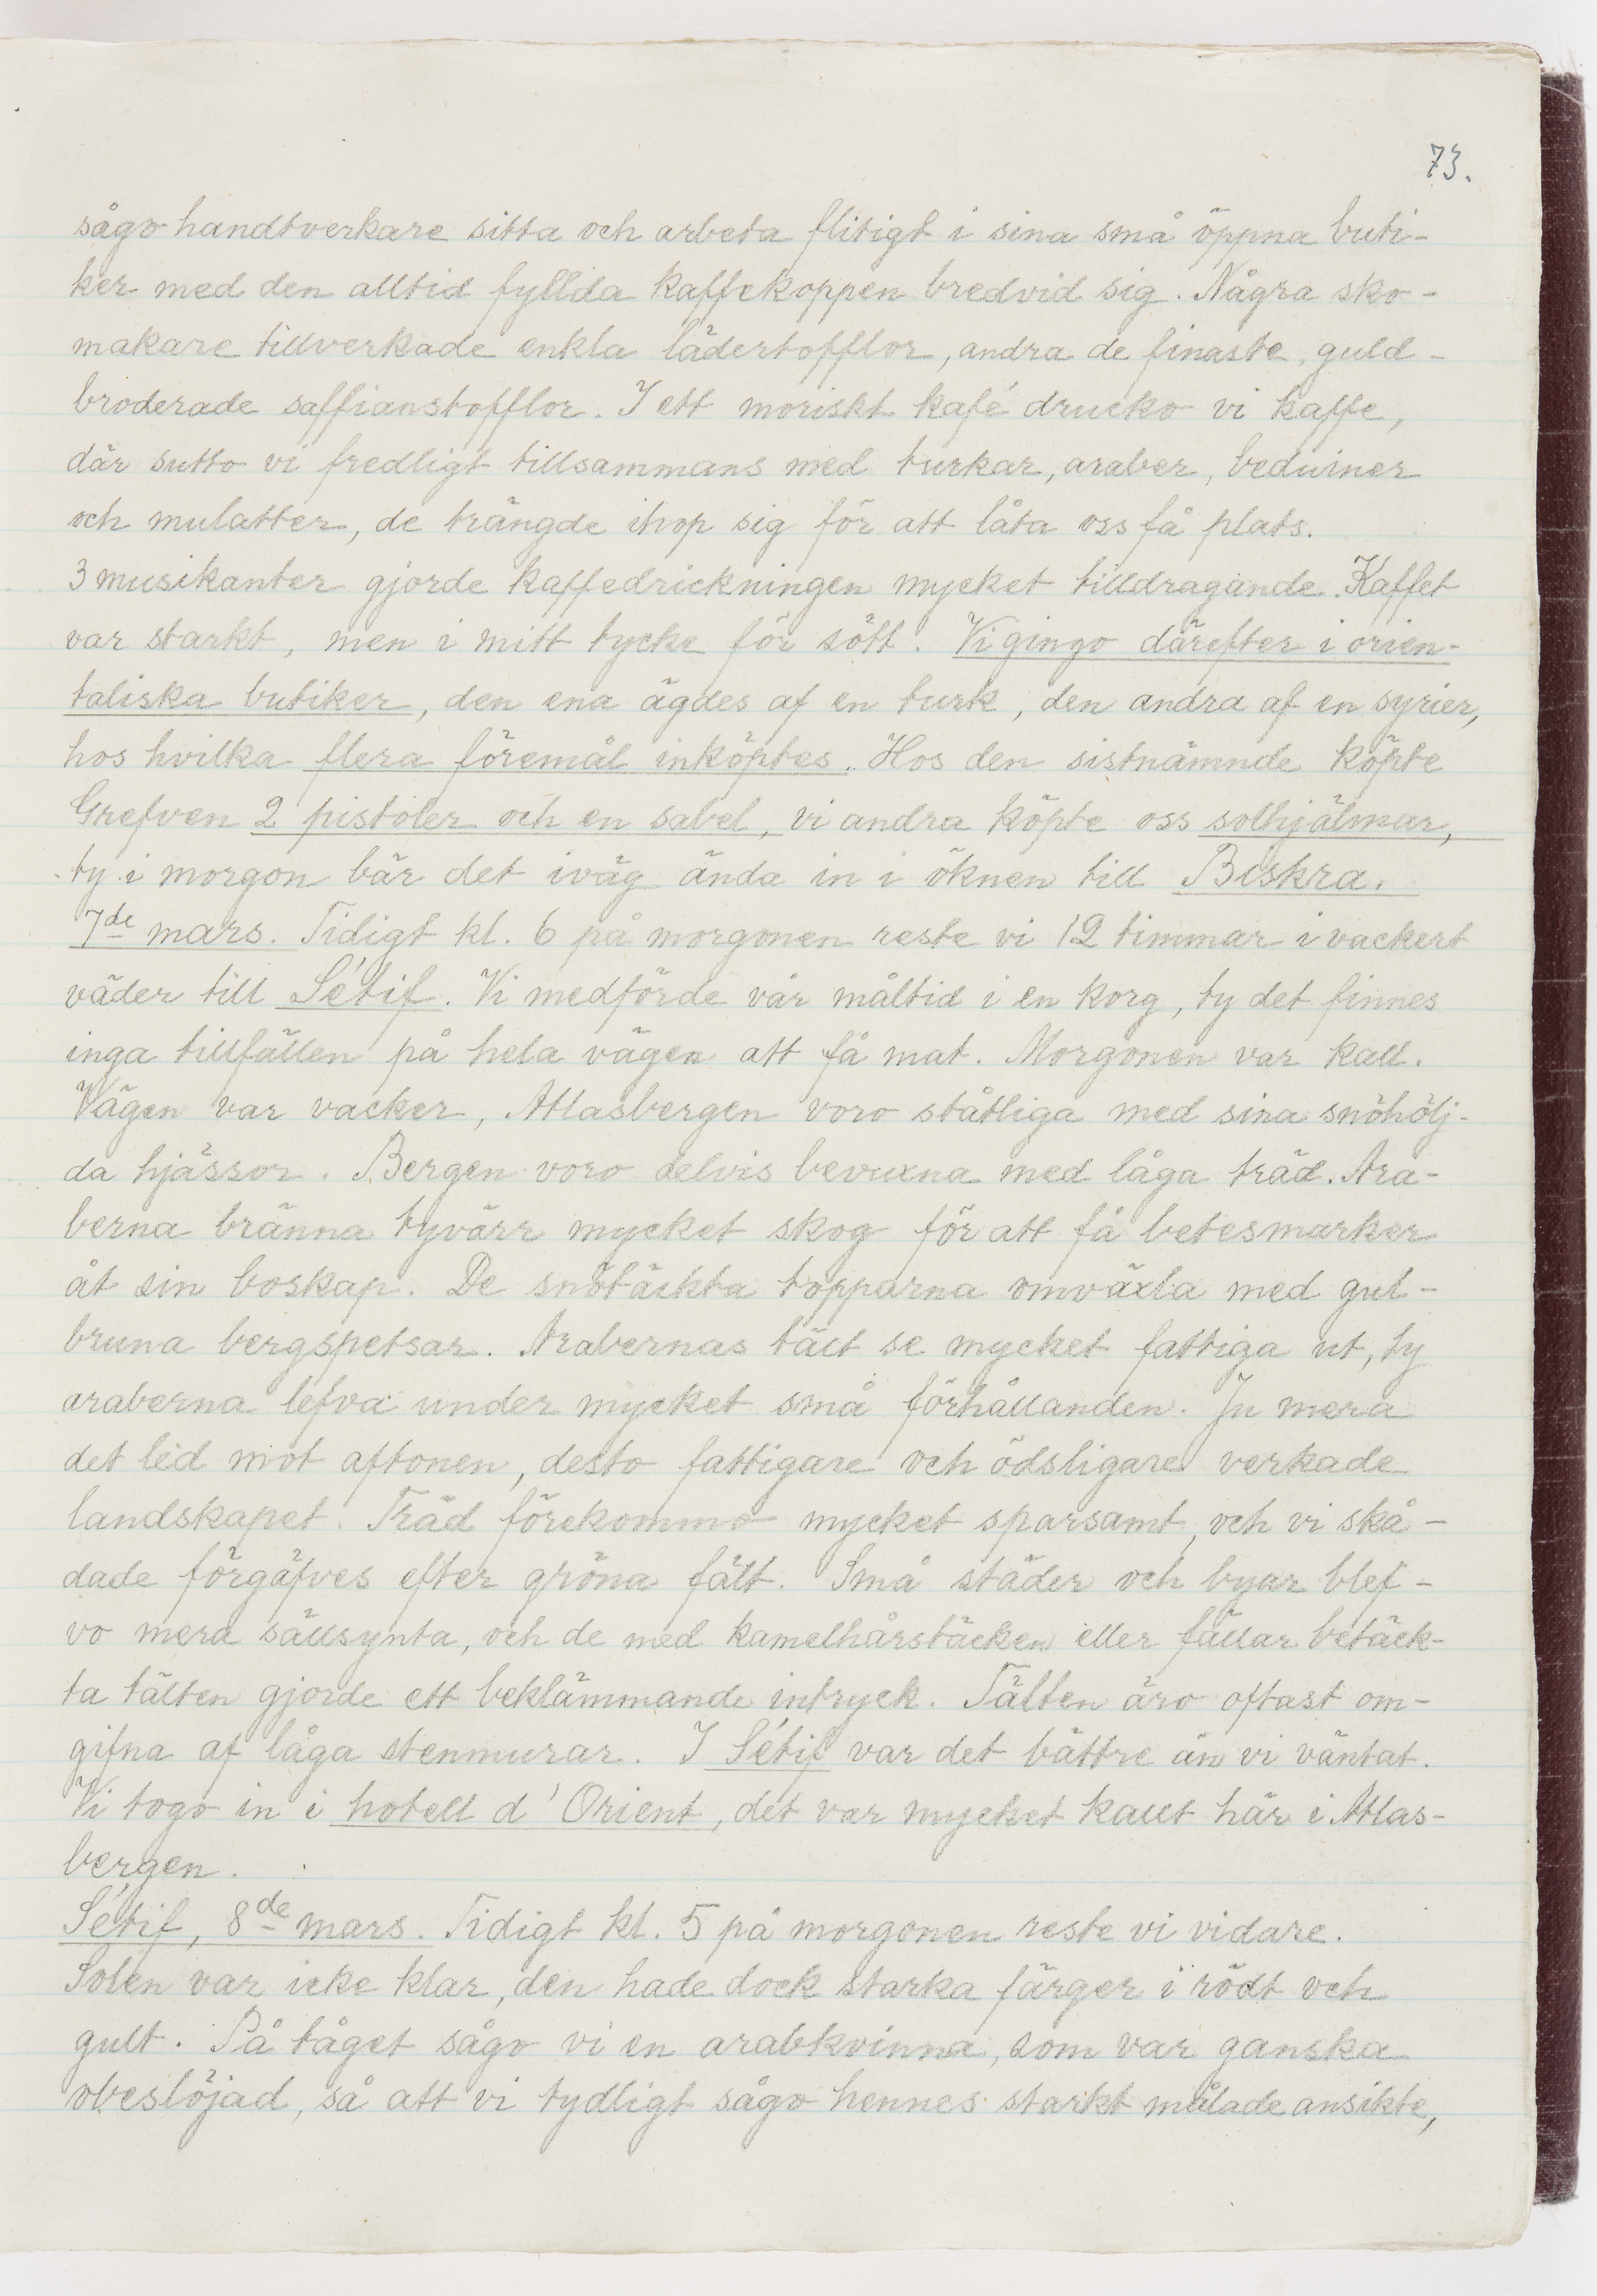 73.
sågo handtverkare sitta och arbeta flitigt i sina små öppna buti-
ker med den alltid fyllda kaffekoppen bredvid sig. Några sko-
makare tillverkade enkla lädertofflor, andra de finaste, guld-
broderade saffianstofflor. I ett moriskt kafé drucko vi kaffe,
där sutto vi fredligt tillsammans med turkar, araber, beduiner
och mulatter, de trängde ihop sig för att låta oss få plats.
3 musikanter gjorde kaffedrickningen mycket tilldragande. Kaffet
var starkt, men i mitt tycke för sött. Vi gingo därefter i orien-
taliska butiker, den ena ägdes af en turk, den andra af en syrier,
hos hvilka flera föremål inköptes. Hos den sistnämnde köpte
Grefven 2 pistoler och en sabel, vi andra köpte oss solhjälmar,
ty i morgon bär det iväg ända in i öknen till Biskra.
7de mars. Tidigt kl. 6 på morgonen reste vi 12 timmar i vackert
väder till Sétif. Vi medförde vår måltid i en korg, ty det finnes
inga tillfällen på hela vägen att få mat. Morgonen var kall.
Vägen var vacker, Atlasbergen voro ståtliga med sina snöhölj-
da hjässor. Bergen voro delvis bevuxna med låga träd. Ara-
berna bränna tyvärr mycket skog för att få betesmarker
åt sin boskap. De snötäckta topparna omväxla med gul-
bruna bergspetsar. Arabernas tält se mycket fattiga ut, ty
araberna lefva under mycket små förhållanden. Ju mera
det led mot aftonen, desto fattigare och ödsligare verkade
landskapet. Träd förekommo mycket sparsamt, och vi skå-
dade förgäfves efter gröna fält. Små städer och byar blef-
vo mera sällsynta, och de med kamelhårstäcken eller fällar betäck-
ta tälten gjorde ett beklämmande intryck. Tälten äro oftast om-
gifna af låga stenmurar. I Sétif var det bättre än vi väntat.
Vi togo in i hotell d'Orient, det var mycket kallt här i Atlas-
bergen.
Sétif, 8de mars. Tidigt kl. 5 på morgonen reste vi vidare.
Solen var icke klar, den hade dock starka färger i rödt och
gult. På tåget sågo vi en arabkvinna, som var ganska
obeslöjad, så att vi tydligt sågo hennes starkt målade ansikte,